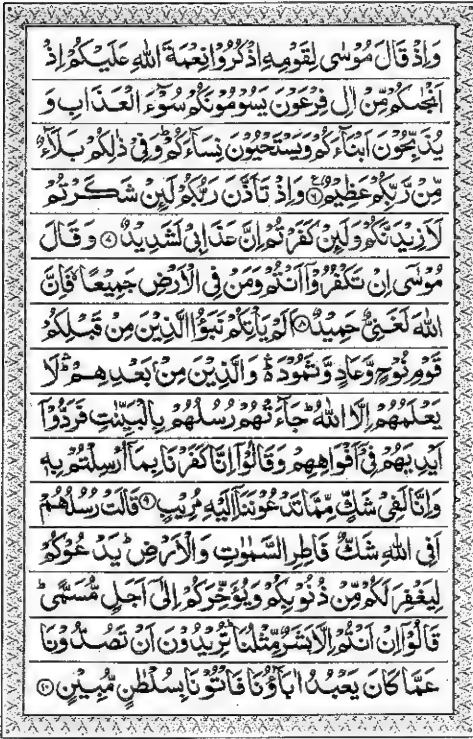 وَاِذْ قَالَ مُوْسٰى لِقَوْمِهِ اذْكُرُوْا نِعْمَةَ اللّٰهِ عَلَيْكُمْ اِذْ
اَنْجٰىكُمْ مِّنْ اٰلِ فِرْعَوْنَ يَسُوْمُوْنَكُمْ سُوْٓءَ الْعَذَابِ وَ
يُذَبِّحُوْنَ اَبْنَآءَكُمْ وَيَسْتَحْيُوْنَ نِسَآءَكُمْ ؕ وَفِيْ ذٰلِكُمْ بَلَآءٌ
مِّنْ رَّبِّكُمْ عَظِيْمٌ ۶ وَاِذْ تَاَذَّنَ رَبُّكُمْ لَىِٕنْ شَكَرْتُمْ
لَاَزِيْدَنَّكُمْ وَلَىِٕنْ كَفَرْتُمْ اِنَّ عَذَابِيْ لَشَدِيْدٌ ۷ وَقَالَ
مُوْسٰٓى اِنْ تَكْفُرُوْٓا اَنْتُمْ وَمَنْ فِى الْاَرْضِ جَمِيْعًا ۙ فَاِنَّ
اللّٰهَ لَغَنِيٌّ حَمِيْدٌ ۸ اَلَمْ يَاْتِكُمْ نَبَؤُا الَّذِيْنَ مِنْ قَبْلِكُمْ
قَوْمِ نُوْحٍ وَّعَادٍ وَّثَمُوْدَ ۛؕ وَالَّذِيْنَ مِنْۢ بَعْدِهِمْ ۛؕ لَا
يَعْلَمُهُمْ اِلَّا اللّٰهُ ؕ جَآءَتْهُمْ رُسُلُهُمْ بِالْبَيِّنٰتِ فَرَدُّوْٓا
اَيْدِيَهُمْ فِيْٓ اَفْوَاهِهِمْ وَقَالُوْٓا اِنَّا كَفَرْنَا بِمَآ اُرْسِلْتُمْ بِهٖ
وَاِنَّا لَفِيْ شَكٍّ مِّمَّا تَدْعُوْنَنَآ اِلَيْهِ مُرِيْبٍ ۹ قَالَتْ رُسُلُهُمْ
اَفِى اللّٰهِ شَكٌّ فَاطِرِ السَّمٰوٰتِ وَالْاَرْضِ ؕ يَدْعُوْكُمْ
لِيَغْفِرَ لَكُمْ مِّنْ ذُنُوْبِكُمْ وَيُؤَخِّرَكُمْ اِلٰٓى اَجَلٍ مُّسَمًّى ؕ
قَالُوْٓا اِنْ اَنْتُمْ اِلَّا بَشَرٌ مِّثْلُنَا ؕ تُرِيْدُوْنَ اَنْ تَصُدُّوْنَا
عَمَّا كَانَ يَعْبُدُ اٰبَآؤُنَا فَاْتُوْنَا بِسُلْطٰنٍ مُّبِيْنٍ ۱۰